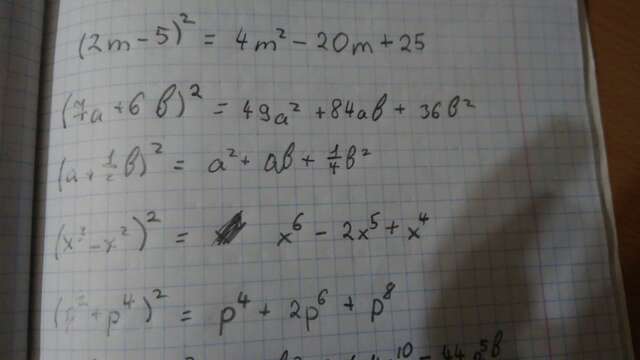 (2m - 5)² = 4m² - 20m + 25
(7a + 6b)² = 49a² + 84ab + 36b²
(a + ½b)² = a² + ab + ¼b²
(x³ - x²)² = x⁶ - 2x⁵ + x⁴
(p² + p⁴)² = p⁴ + 2p⁶ + p⁸